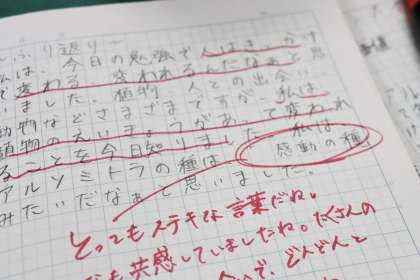 ふり返り
私は、今日の勉強で人はきっかけ
で変わる、変われるんだなぁと思
いました。植物、人との出会い、
動物などさまざまですが、私は
植物のえいきょうがあって変われ
ることを今日知りました。私は
アルソミトラの種は、感動の種
みたいだなぁと思いました。
とってもステキな言葉だね。
も共感していましたね。たくさんの
で、どんどんと